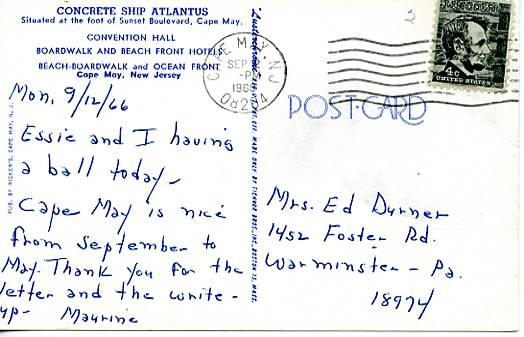 CONCRETE SHIP ATLANTUS
Situated at the foot of Sunset Boulevard, Cape May.
CONVENTION HALL
BOARDWALK AND BEACH FRONT HOTELS
BEACH BOARDWALK AND OCEAN FRONT
Cape May, New Jersey
Mon, 9/12/66
Essie and I having
a ball today-
Cape May is nice
from September to
May. Thank you for the
letter and the write-
up- Maurine
PUB. BY RICKER'S, CAPE MAY, N. J.
CAPE MAY, N.J.
SEP
1966
08204
2
LINCOLN
4¢
UNITED STATES
POST CARD
Mrs. Ed Durner
1452 Foster Rd.
Warminster - Pa.
18974